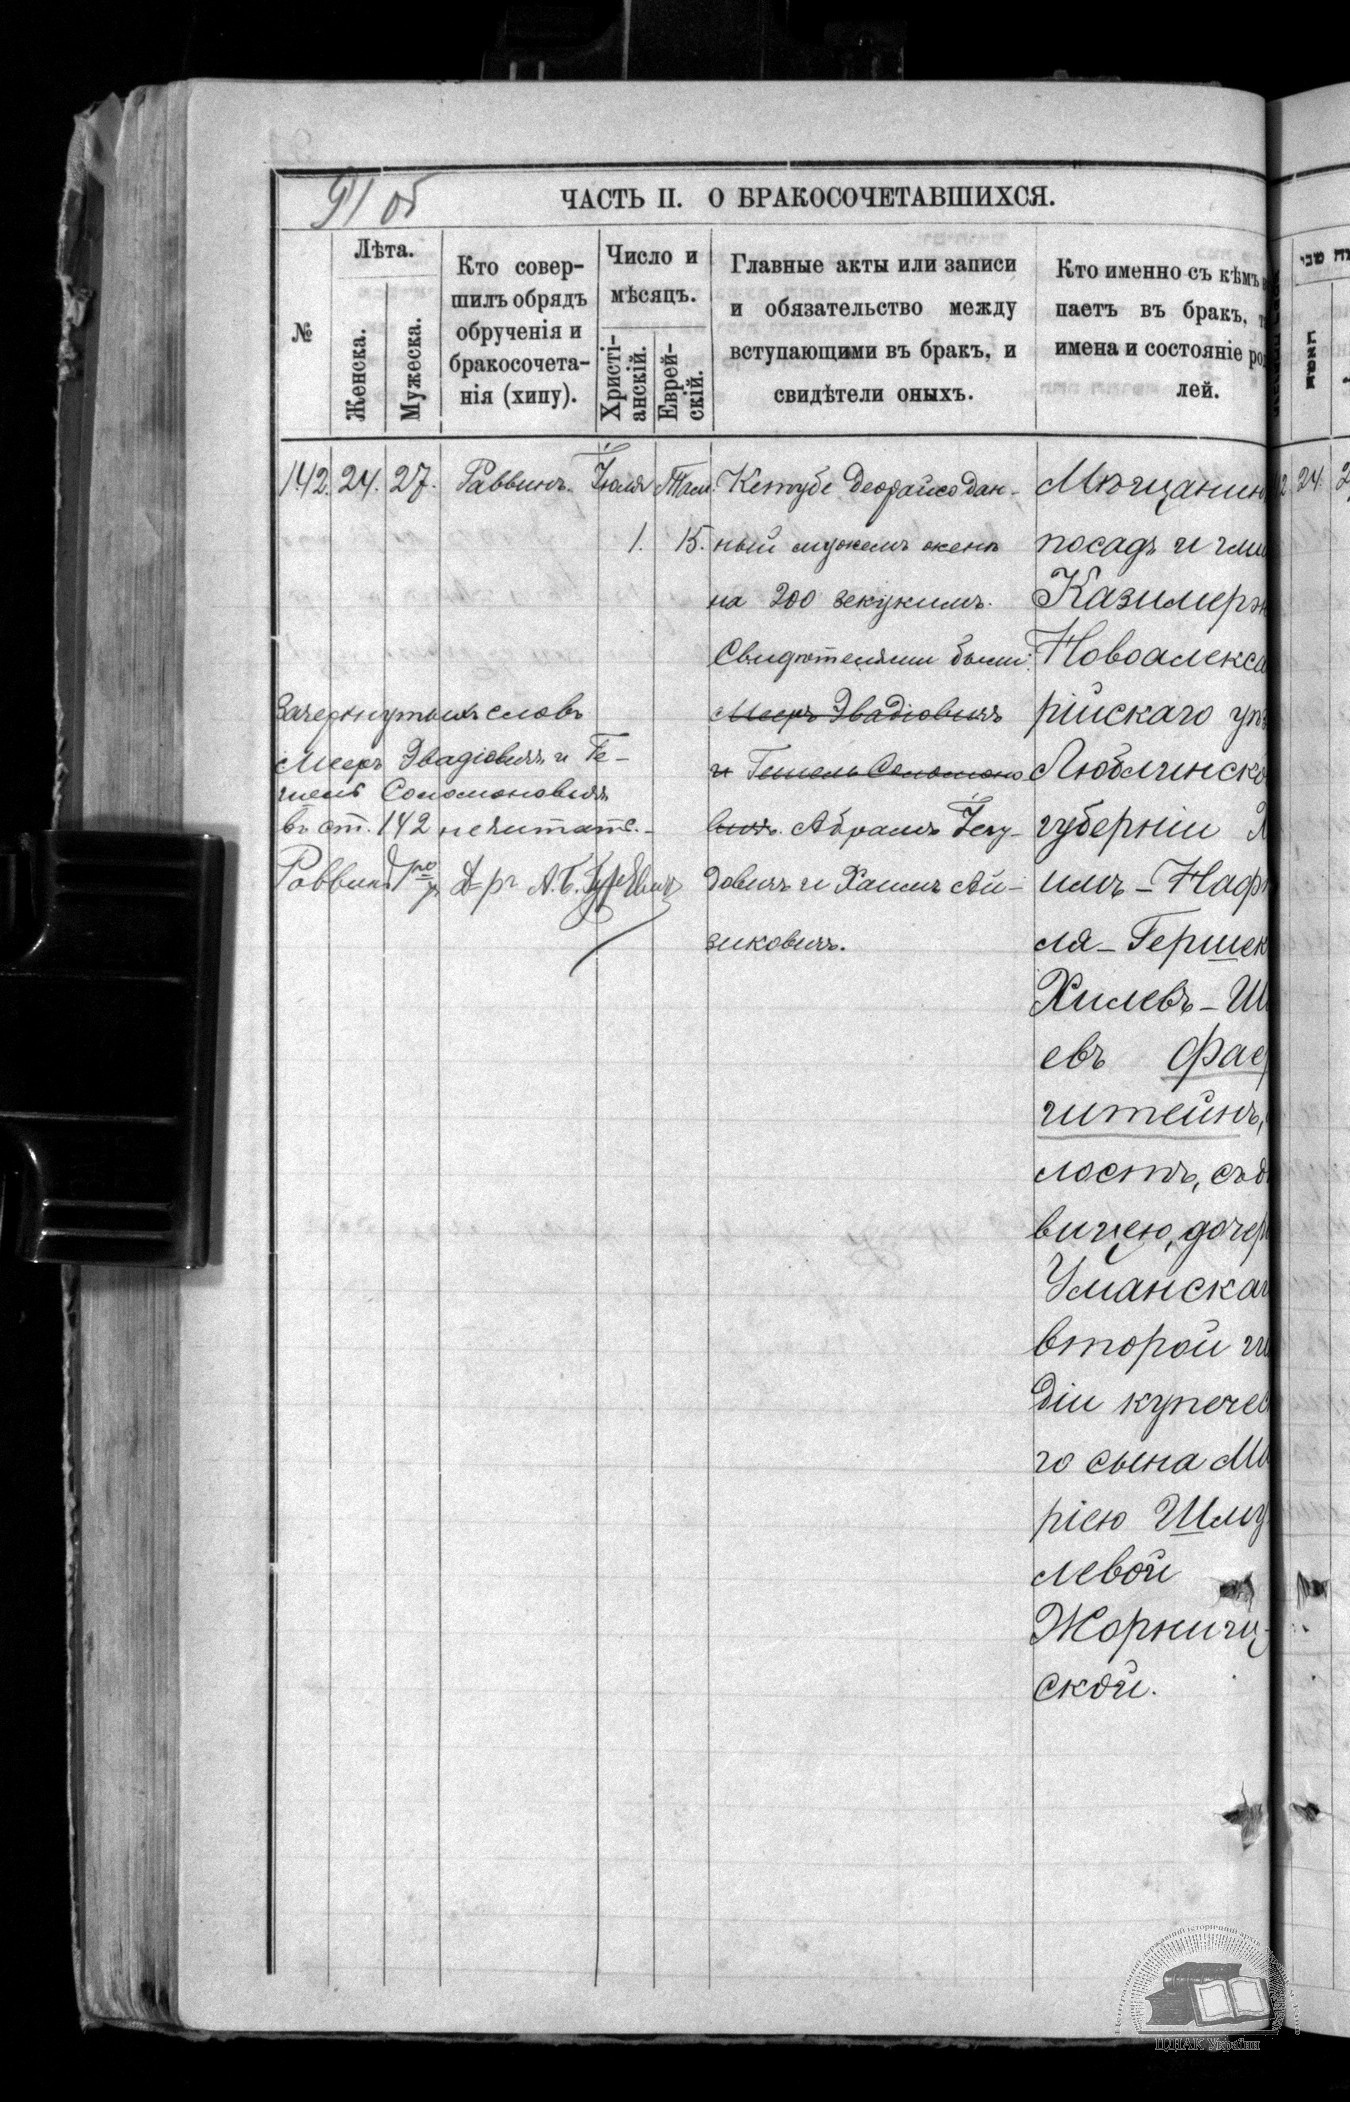 91 об
ЧАСТЬ II. О БРАКОСОЧЕТАВШИХСЯ.
№
Лѣта.
Женска.
Мужеска.
Кто совер-
шилъ обрядъ
обрученія и
бракосочета-
нія (хипу).
Число и
мѣсяцъ.
Христі-
анскій.
Еврей-
скій.
Главные акты или записи
и обязательство между
вступающими въ бракъ, и
свидѣтели оныхъ.
Кто именно съ кѣмъ
паетъ въ бракъ,
имена и состояніе
лей.
142. 24. 27. Раввинъ. Іюля Там.
1. 15.
Кетубе деорайсо дан-
ный мужемъ женѣ
на 200 зекукимъ.
Свидѣтелями были:
Мееръ Эвадіовичъ
и Гешель Соломоно
вичъ. Абрамъ Іегу-
довичъ и Хаимъ Ай-
зиковичъ.
Мѣщанинъ
посадъ и
Казимерж
Новоалекса
рійскаго уѣз
Люблинско
губерніи
имъ-Наф
ля-Гершек
Хилевъ-Ш
евъ Фае
штейнъ,
лостъ, съ дѣ
вицею, дочер
Уманскаг
второй ги
діи купечес
го сына Ма
ріею Шму
левой
Жорнищ-
ской.
Зачеркнутыхъ словъ
Мееръ Эвадіовичъ и Ге-
шель Соломоновичъ
въ ст. 142 не читать.-
Раввинъ Д-ръ А.Б. Гуревичъ
24
ЦДІАК України